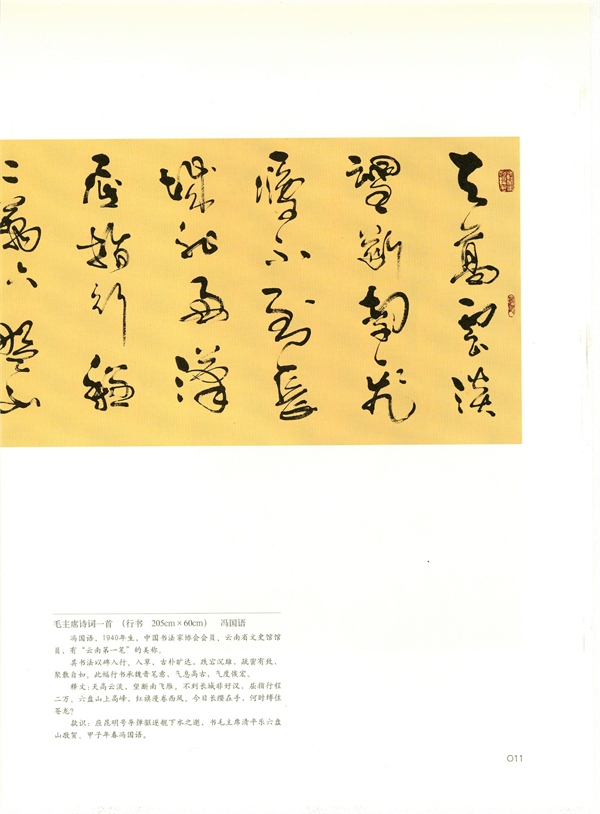 天高雲淡
望斷南飛
雁不到長
城非好漢
屈指行程
二萬六盤山
毛主席诗词一首 （行书 205cm×60cm） 冯国语
冯国语，1940年生，中国书法家协会会员，云南省文史馆馆
员，有“云南第一笔”的美称。
其书法以碑入行、入草，古朴旷达，跌宕沉雄，疏密有致，
聚散自如。此幅行书承魏晋笔意，气息高古，气度恢宏。
释文：天高云淡，望断南飞雁，不到长城非好汉，屈指行程
二万，六盘山上高峰，红旗漫卷西风，今日长缨在手，何时缚住
苍龙？
款识：应昆明号导弹驱逐舰下水之邀，书毛主席清平乐六盘
山敬贺。甲子年春冯国语。
011